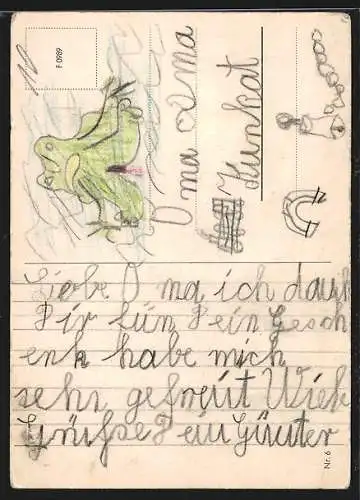 F 0989
O ma O ma
Kunkat
Liebe O ma ich dank
Dir für Dein Gesch
enk habe mich
sehr gefreut Wiele
Grüße Dein Günter
Nr. 6